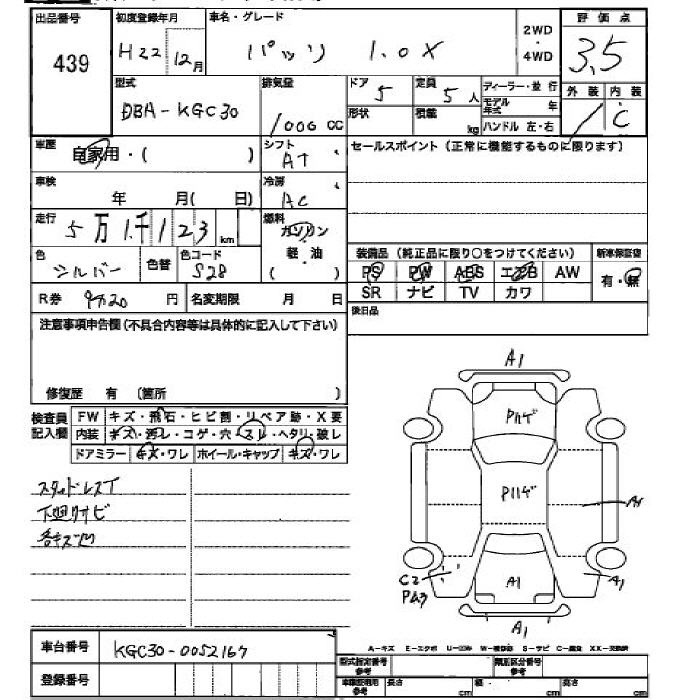 出品番号 初度登録年月 車名・グレード 2WD・4WD 評価点
439 H22 12月 パッソ 1.0X 3.5
型式 排気量 ドア 5 定員 5人 ディーラー・並行 外装 内装
DBA-KGC30 1000 cc 形状 積載 kg モデル年式 年 C
ハンドル 左・右
車歴 自家用・( ) シフト AT セールスポイント(正常に機能するものに限ります)
車検 年 月( 日) 冷房 AC
走行 5万1千123 km 燃料 ガソリン・軽油 ( )
色 シルバー 色替 色コード S28
装備品(純正品に限り○をつけてください) 新車保証書
PS PW ABS エアB AW 有・無
SR ナビ TV カワ
R券 9720 円 名変期限 月 日
後日品
注意事項申告欄(不具合内容等は具体的に記入して下さい)
修復歴 有 (箇所 )
検査員記入欄 FW キズ・飛石・ヒビ割・リペア跡・X要
内装 キズ・汚レ・コゲ・穴・スレ・ヘタリ・破レ
ドアミラー キズ・ワレ ホイール・キャップ キズ・ワレ
スタッドレスT
下廻サビ
各キズ凹
A1
A1
C2
A1
A1
A1
A-キズ E-エクボ U-凹み W-補修跡 S-サビ C-腐食 XX-交換済
車台番号 KGC30-0052167
登録番号
型式指定番号 参考 類別区分番号 参考
参考 長さ cm 幅・ cm 高さ cm